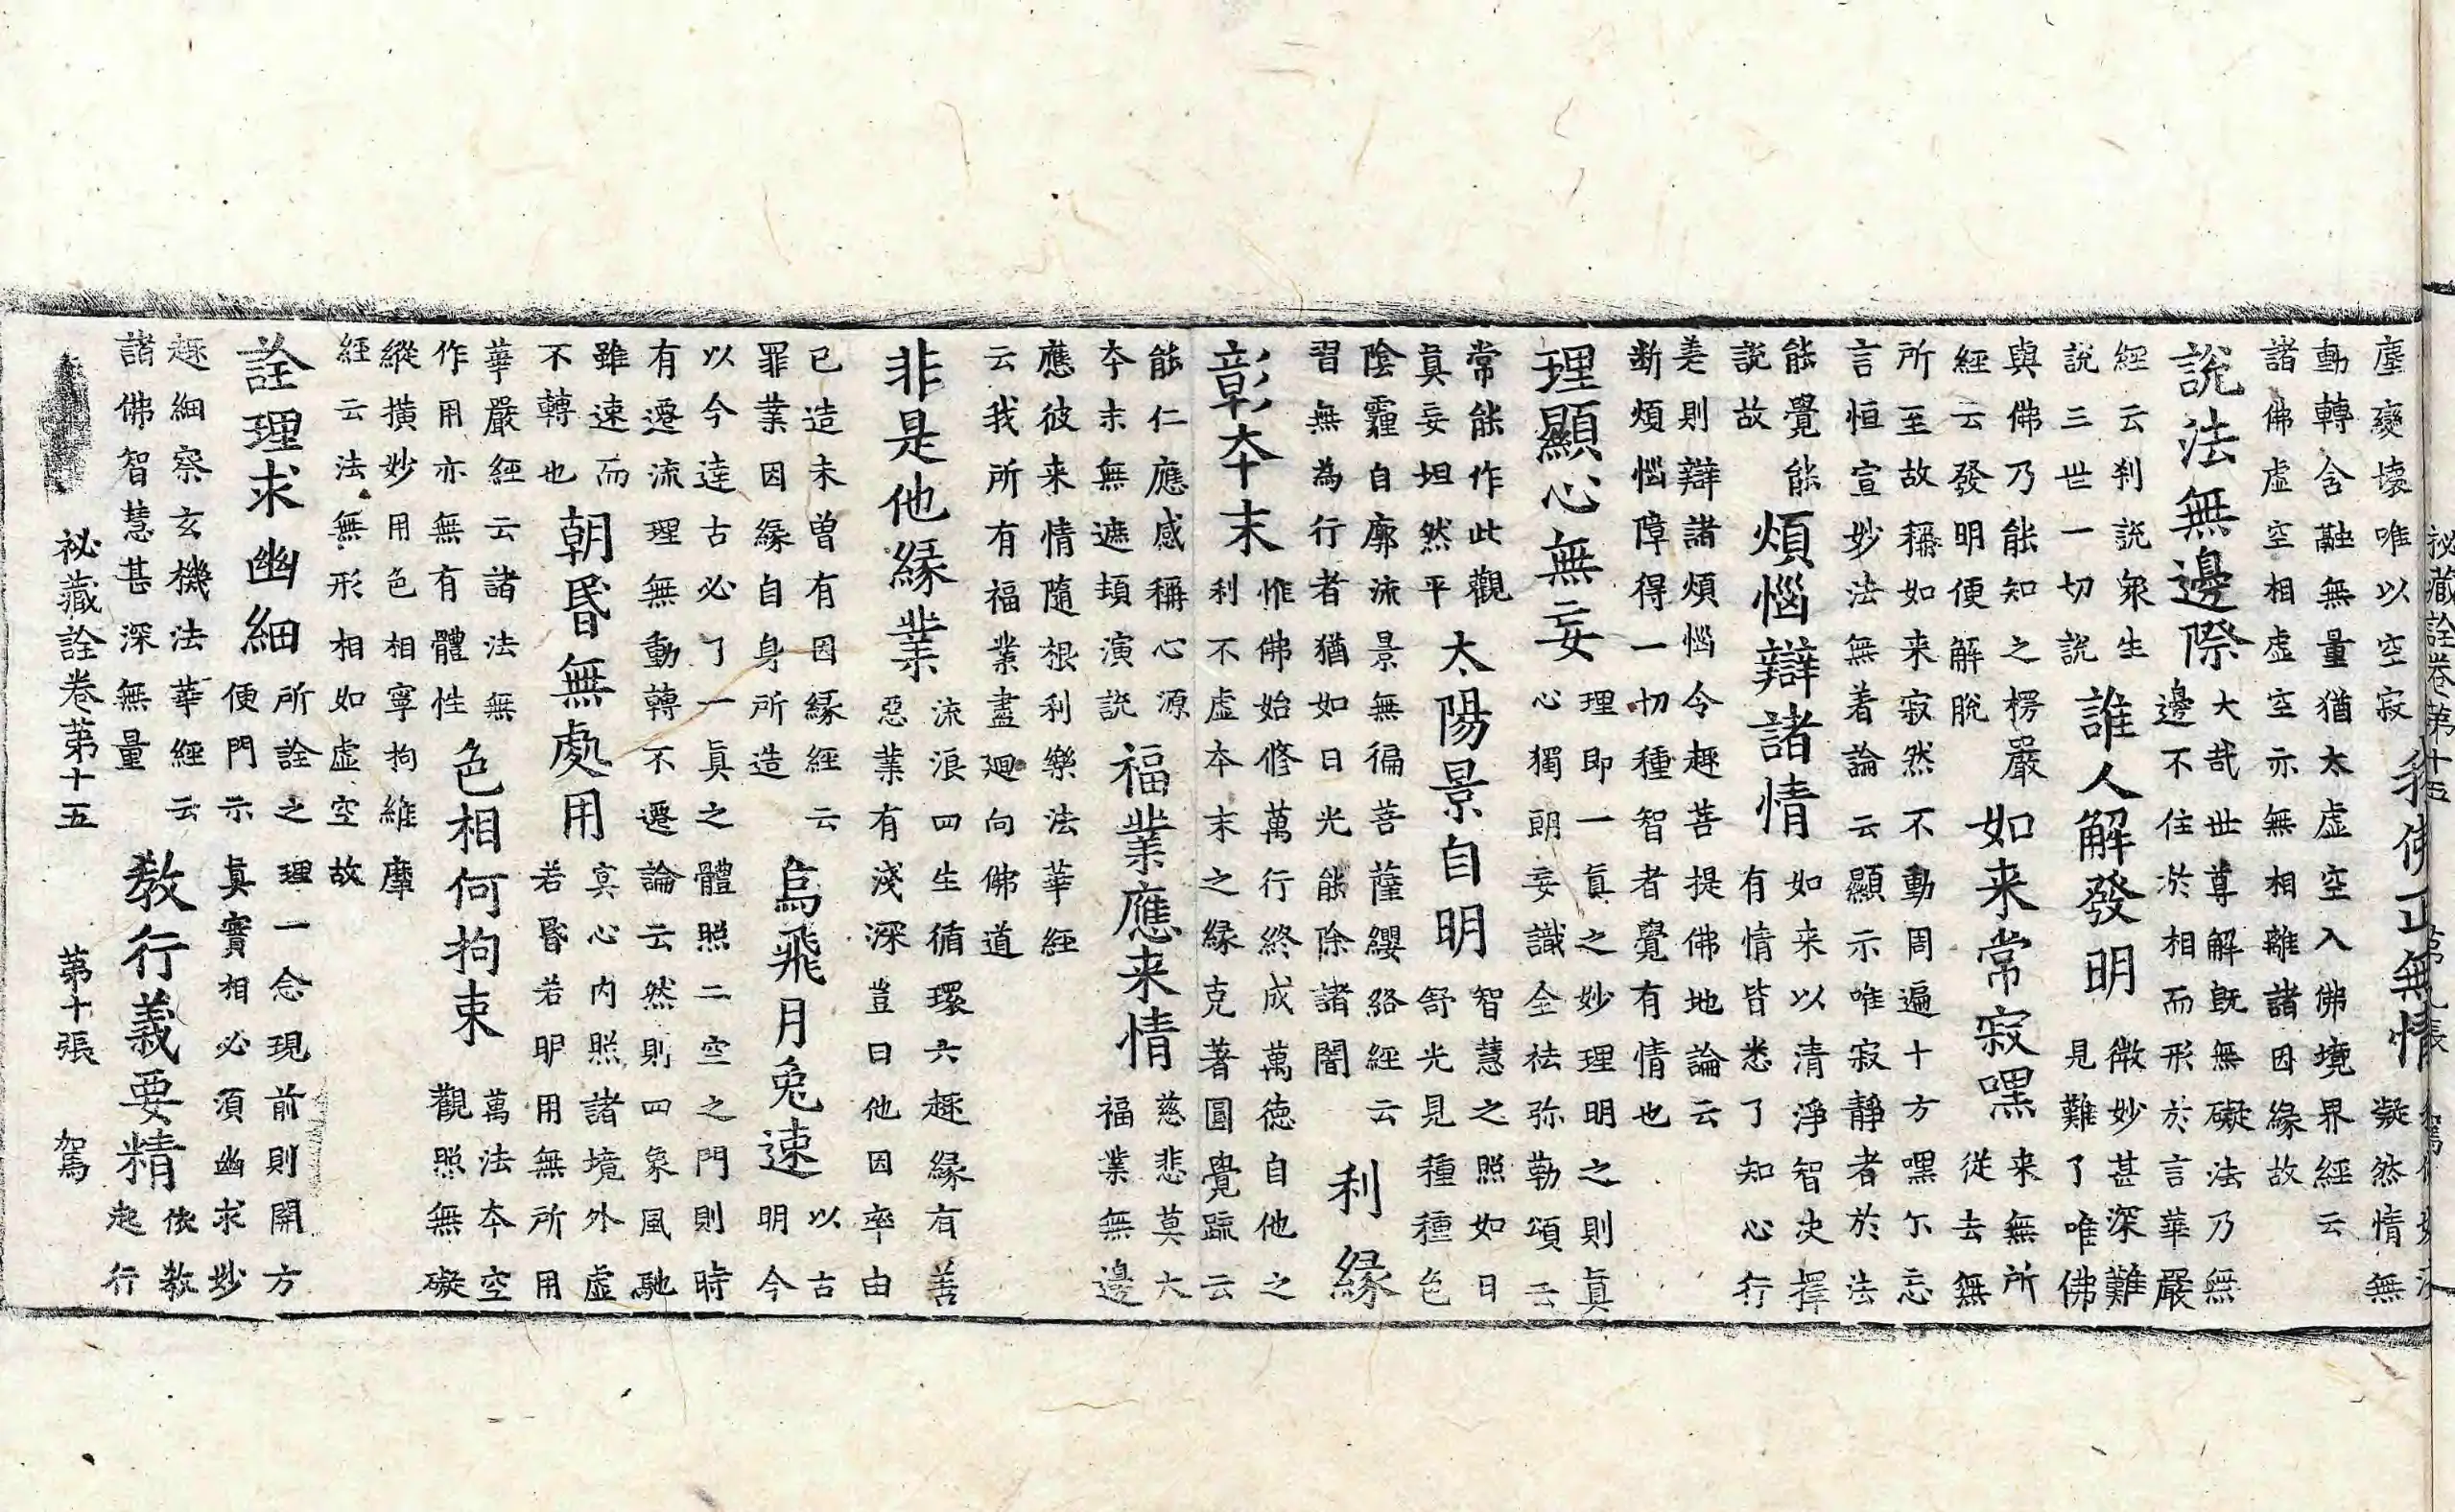 塵變壞唯以空寂
我佛正無情
凝然情無
動轉含融無量猶太虛空入佛境界經云
諸佛虛空相虛空亦無相離諸因緣故
說法無邊際
大哉世尊解旣無礙法乃無
邊不住於相而形於言華嚴
經云刹說衆生
說三世一切說
誰人解發明
微妙甚深難
見難了唯佛
與佛乃能知之楞嚴
經云發明便解脫
如来常寂嘿
来無所
從去無
所至故稱如来寂然不動周遍十方嘿尓忘
言恒宣妙法無着論云顯示唯寂靜者於法
能覺能
說故
煩惱辯諸情
如来以清淨智决擇
有情皆悉了知心行
差則辯諸煩惱令趣菩提佛地論云
断煩惱障得一切種智者覺有情也
理顯心無妄
理即一真之妙理明之則真
心獨朗妄識全祛弥勒頌云
常能作此觀
真妄坦然平
太陽景自明
智慧之照如日
舒光見種種色
陰霾自廓流景無徧菩薩纓絡經云
習無為行者猶如日光能除諸闇
利緣
彰夲末
惟佛始修萬行終成萬德自他之
利不虛夲末之緣克著圓覺䟽云
能仁應感稱心源
夲末無遮頓演說
福業應来情
慈悲莫大
福業無邊
應彼来情隨根利樂法華經
云我所有福業盡廻向佛道
非是他緣業
流浪四生循環六趣緣有善
惡業有淺深豈曰他因率由
已造未曾有因緣經云
罪業因緣自身所造
烏飛月兔速
以古
明今
以今達古必了一真之體照二空之門則時
有遷流理無動轉不遷論云然則四象風馳
雖速而
不轉也
朝昏無處用
冥心内照諸境外虛
若昏若明用無所用
華嚴經云諸法無
作用亦無有體性
色相何拘束
萬法夲空
觀照無礙
縱橫妙用色相寧拘維摩
經云法無形相如虛空故
詮理求幽細
所詮之理一念現前則開方
便門示真實相必須幽求妙
趣細察玄機法華經云
諸佛智慧甚深無量
教行義要精
依教
起行
秘藏詮卷第十五 第十張 駕